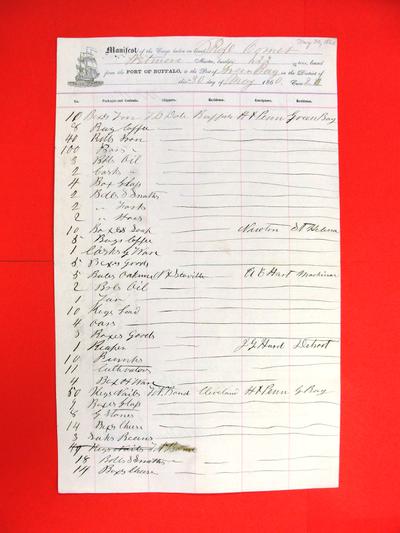 May 30, 1860
Manifest of the Cargo laden on board Prop Comet
Wetmore Master, burthen 233 tons, bound
from the PORT OF BUFFALO, to the Port of Green Bay in the District of
this 30 day of May 1860.
No. Packages and Contents. Shippers. Residence. Consignees. Residence.
10 Bdls Iron T. D. Dole Buffalo H & Penn Green Bay
8 Bags Coffee
40 Rolls Iron
100 Bars "
3 Bbls Oil
2 Casks "
4 Box Glass
2 Bdls Snaths
2 " Forks
2 " Hoes
10 Boxes Soap Newton St Helena
5 Bags Coffee
1 Casks Ware
5 Boxes Goods
5 Bales Oakum A E Hart Mackinac
2 Bbls Oil
1 Tar
10 Kegs Lead
4 Oars
3 Boxes Goods
1 Reaper J G Hurd Detroit
10 Pumps
11 Cultivators
4 Box H Ware
50 Kegs Nails T. P. Bond Cleveland H & Penn G Bay
9 Boxes Glass
8 G Stones
14 Boxes Cheese
3 Sacks Beans
49 Kegs Nails
18 Bdls Snaths
14 Boxes Cheese